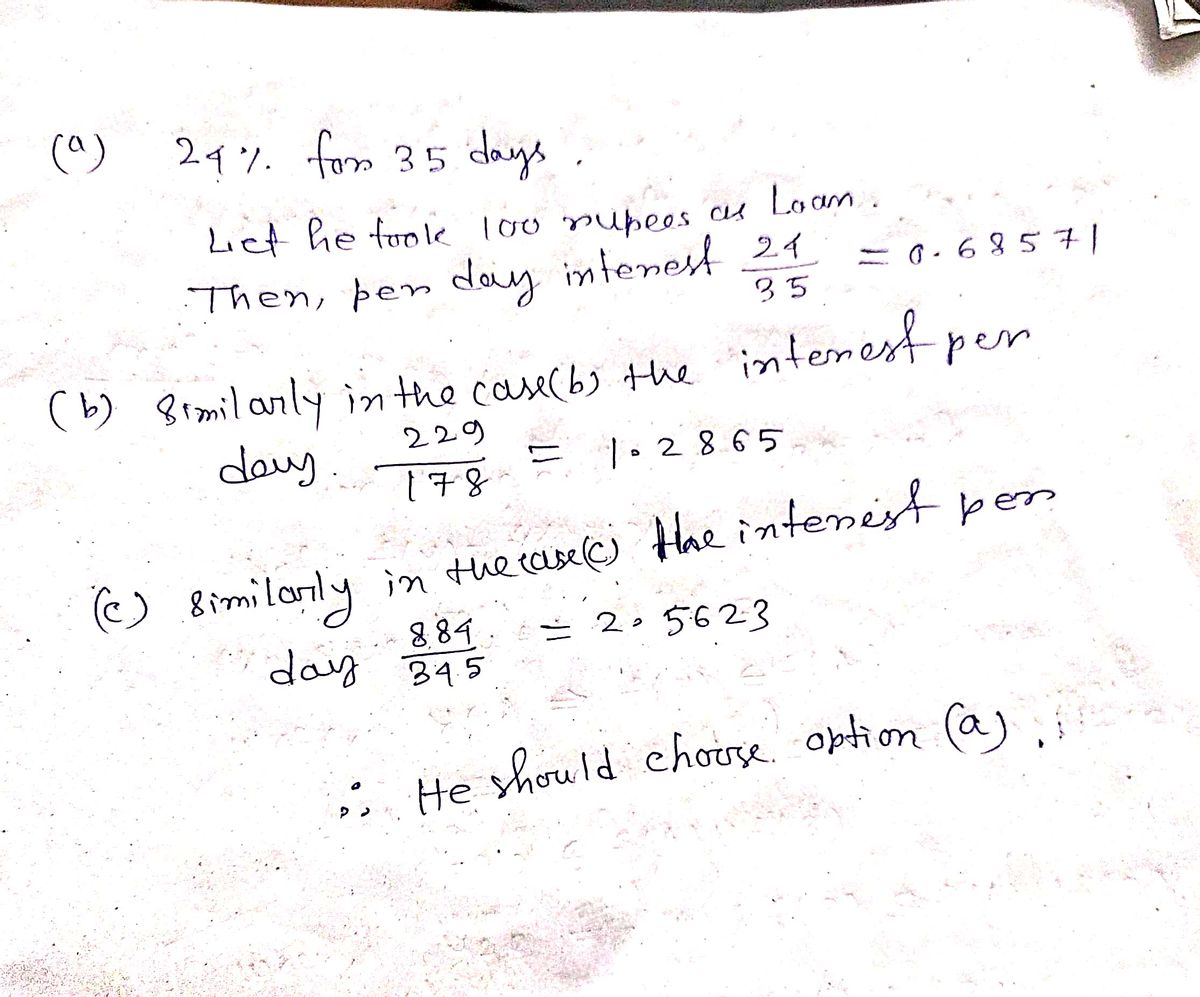 (a) 24%. for 35 days.
Let he took 100 rupees as Loan.
Then, per day interest 24/35 = 0.68571
(b) Similarly in the case(b) the interest per
day. 229/178 = 1.2865
(c) Similarly in the case(c) the interest per
day 884/345 = 2.5623
∴ He should choose option (a).